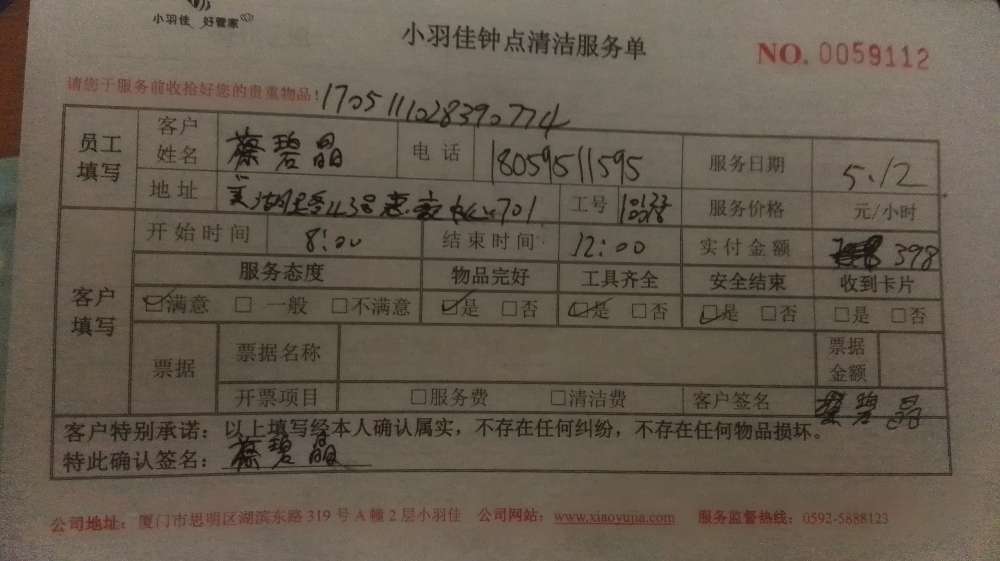 小羽佳 好管家
小羽佳钟点清洁服务单
NO. 0059112
请您于服务前收拾好您的贵重物品! 1705111028390774
员工填写 客户姓名 蔡碧晶 电话 18059511595 服务日期 5.12
地址 43号 701 工号 服务价格 元/小时
客户填写 开始时间 8:00 结束时间 12:00 实付金额 398
服务态度 物品完好 工具齐全 安全结束 收到卡片
☑满意 □一般 □不满意 ☑是 □否 ☑是 □否 ☑是 □否 □是 □否
票据 票据名称 票据金额
开票项目 □服务费 □清洁费 客户签名 蔡碧晶
客户特别承诺：以上填写经本人确认属实，不存在任何纠纷，不存在任何物品损坏。
特此确认签名：蔡碧晶
公司地址：厦门市思明区湖滨东路319号A幢2层小羽佳 公司网站：www.xiaoyujia.com 服务监督热线：0592-5888123